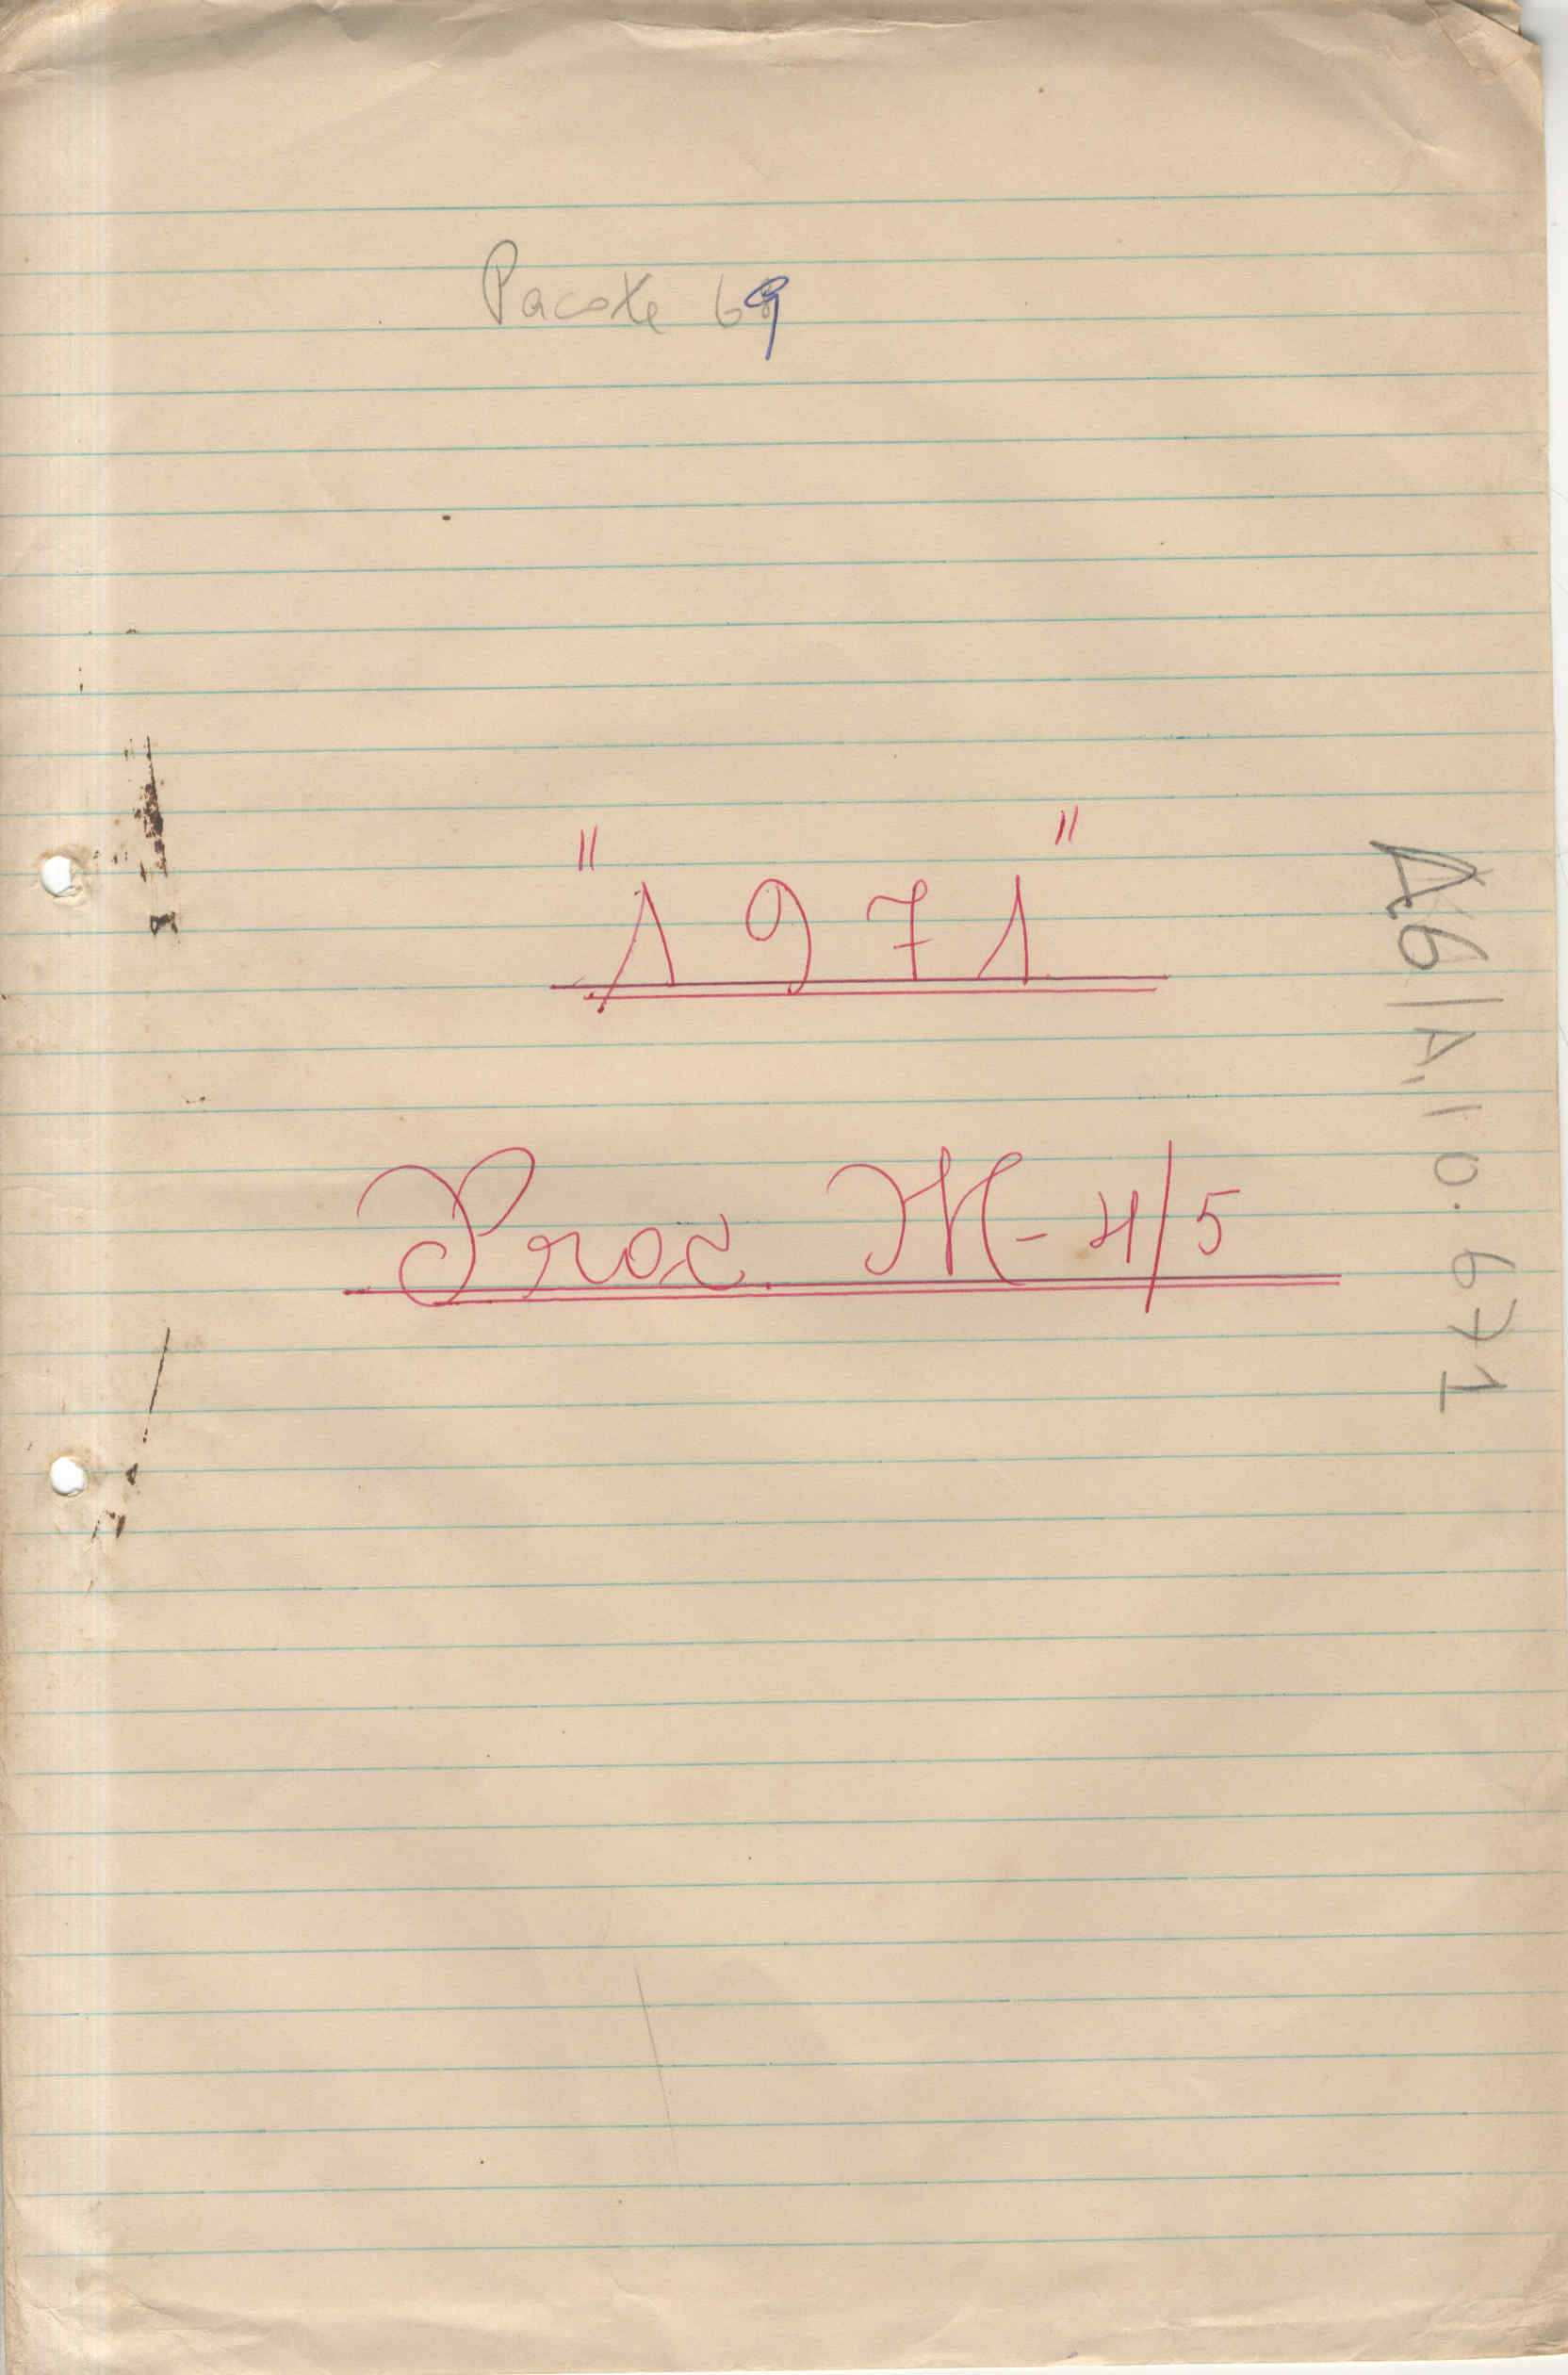 Pacote 69
"1971"
Proc. M-4/5
A6/A.10.671